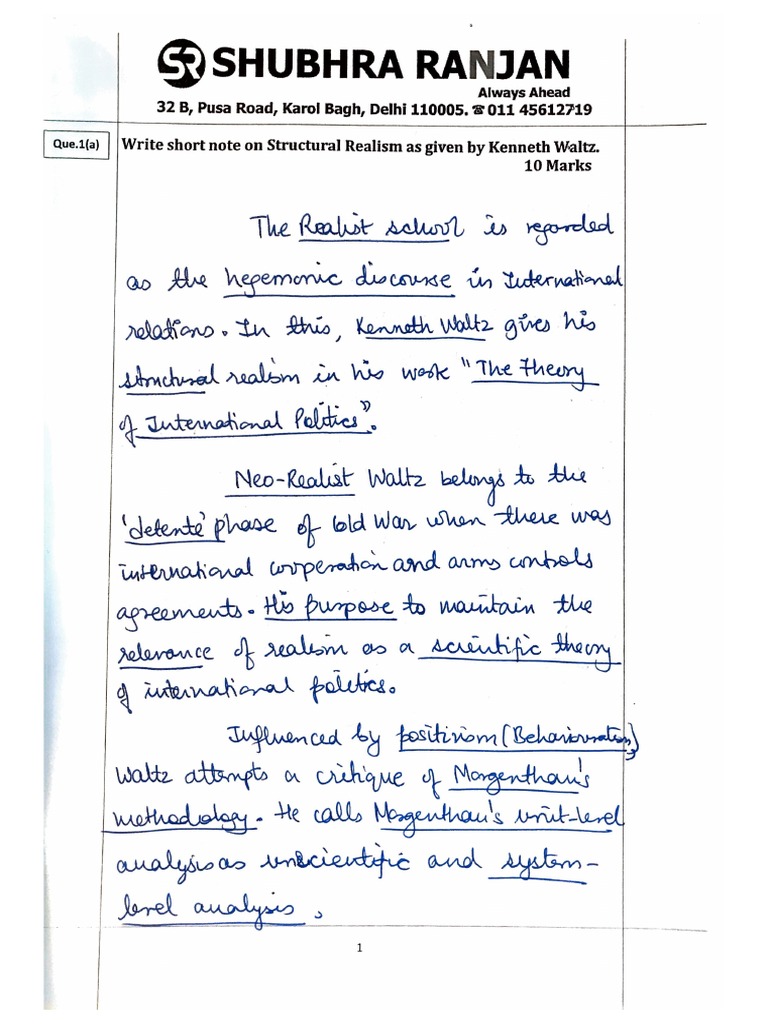 SR SHUBHRA RANJAN
Always Ahead
32 B, Pusa Road, Karol Bagh, Delhi 110005. ☎ 011 45612719
Que.1(a)
Write short note on Structural Realism as given by Kenneth Waltz.
10 Marks
The Realist school is regarded
as the hegemonic discourse in International
relations. In this, Kenneth Waltz gives his
structural realism in his work "The Theory
of International Politics".
Neo-Realist Waltz belongs to the
'detente' phase of Cold War when there was
international cooperation and arms controls
agreements. His purpose to maintain the
relevance of realism as a scientific theory
of international politics.
Influenced by positivism (Behaviouralism)
Waltz attempts a critique of Morgenthau's
methodology. He calls Morgenthau's unit-level
analysis as unscientific and system-
level analysis.
1